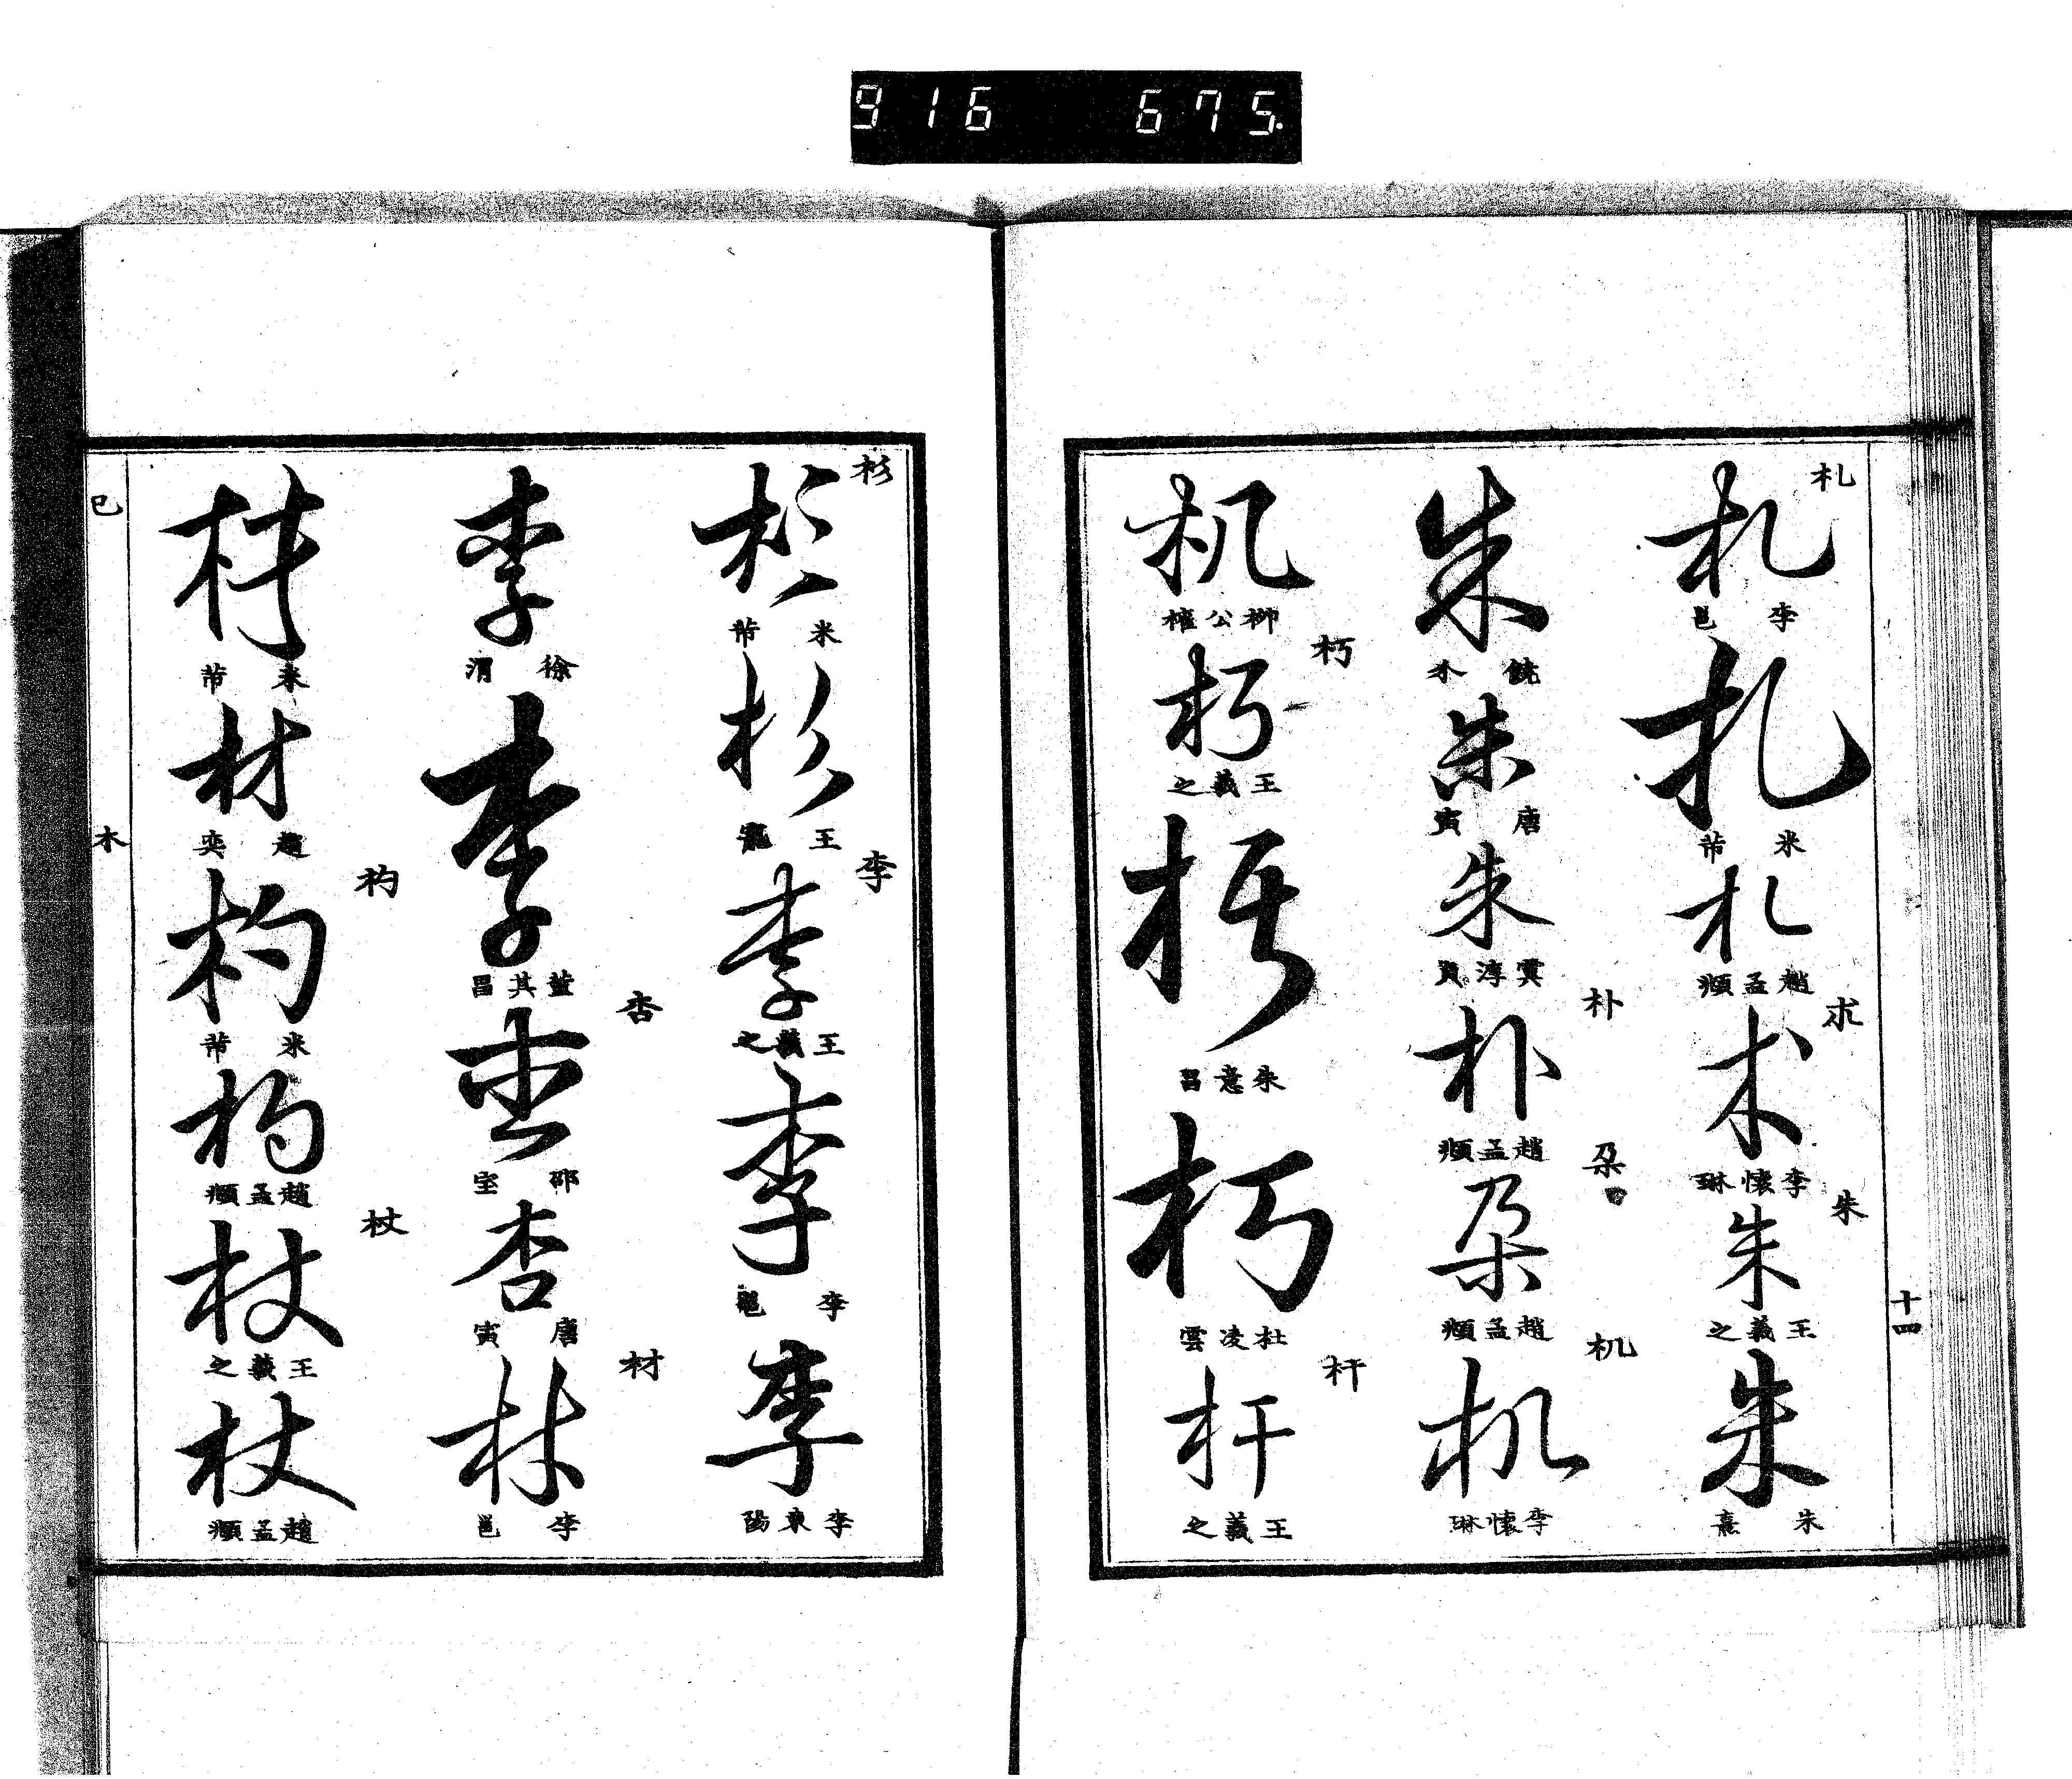 916 675.
十四
札
札
李邕
札
米芾
札
趙孟頫
朮
朮
李懷琳
朱
朱
王羲之
朱
朱熹
朱
朱
唐寅
朱
朴
朴
趙孟頫
朶
朶
趙孟頫
机
机
李懷琳
机
柳公權
朽
朽
王羲之
朽
朱意昌
朽
杜凌雲
杆
杆
王羲之
杉
杉
米芾
杉
王寵
李
李
王羲之
李
李邕
李
李東陽
李
徐渭
李
董其昌
杏
杏
邵宝
杏
唐寅
材
材
李邕
材
米芾
材
趙奕
杓
杓
米芾
杓
趙孟頫
杖
杖
王羲之
杖
趙孟頫
巳
木